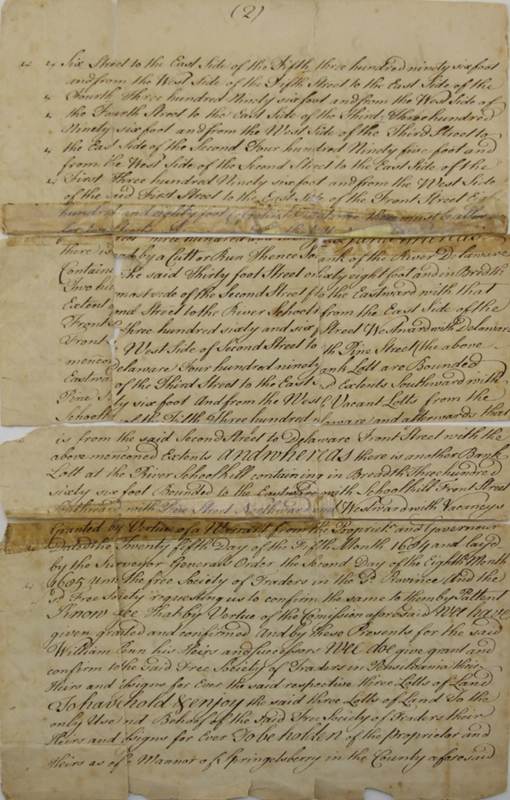 (2)
Six Street to the East Side of the Fifth three hundred ninety six foot
and from the West Side of the Fifth Street to the East Side of the
Fourth Three hundred Ninty six foot and from the West Side of
the Fourth Street to the East Side of the Third, Three hundred
Ninety six foot and from the West Side of the Third Street to
the East Side of the Second Four hundred Ninety five foot and
from the West Side of the Second Street to the East Side of the
First Three hundred Ninety six foot and from the West Side
of the said First Street to the East Side of the Front Street
hundred and eighty foot
three hundred and
there is by a Cutt or Run Thence So ank of the River Delaware
Contain the said Thirty foot Street or sixty eight foot and in Breadth
Two hu most side of the Second Street f to the Eastward with that
Extent o nd Street to the River School from the East Side of the
Front S three hundred sixty and six Street Westward with Delaware
Front West Side of Second Street to th Pine Street (the above
mencon Delaware Four hundred ninety ank Lott are Bounded
Eastwa of the Third Street to the East d Extents Southward with
Pine S ty six foot And from the West Vacant Lotts from the
School of the Fifth three hundred laware and afterwards that
is from the said Second Street to Delaware Front Street with the
above menconed Extents And whereas there is another Bank
Lott at the River Schoolkill containing in Breadth Three hundred
sixty six foot Bounded to the Eastward with Schoolkill Front Street
Southward with Pine Street Northward and Westward with Vacancys
Granted by Vertue of a Warrant from the Propriet and Governour
Dated the Twenty fifth Day of the Fifth Month 1684 and lay'd
by the Surveyor Generals Order the Second Day of the Eighth Month
1685 unto the free Society of Traders in the Province And the
Free Society requesting us to confirm the same to them by Pattent
Know yee That by Vertue of the Comission aforesaid Wee have
given granted and confirmed And by these Presents for the said
William Penn his Heirs and Successors Wee doe give grant and
confirm to the Said Free Society of Traders in Pensilvania their
Heirs and Assigns for Ever the said respective three Lotts of Land
To have hold & enjoy the said three Lotts of Land To the
only Use and Behoof of the Said Free Society of Traders their
Heirs and Assigns for Ever To be holden of the Proprietor and
Heirs as of Mannor of Springetsberry in the County aforesaid